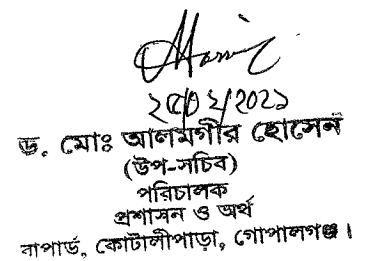 ২৫/০২/২০২১
ড. মোঃ আলমগীর হোসেন
(উপ-সচিব)
পরিচালক
প্রশাসন ও অর্থ
বাপার্ড, কোটালীপাড়া, গোপালগঞ্জ।